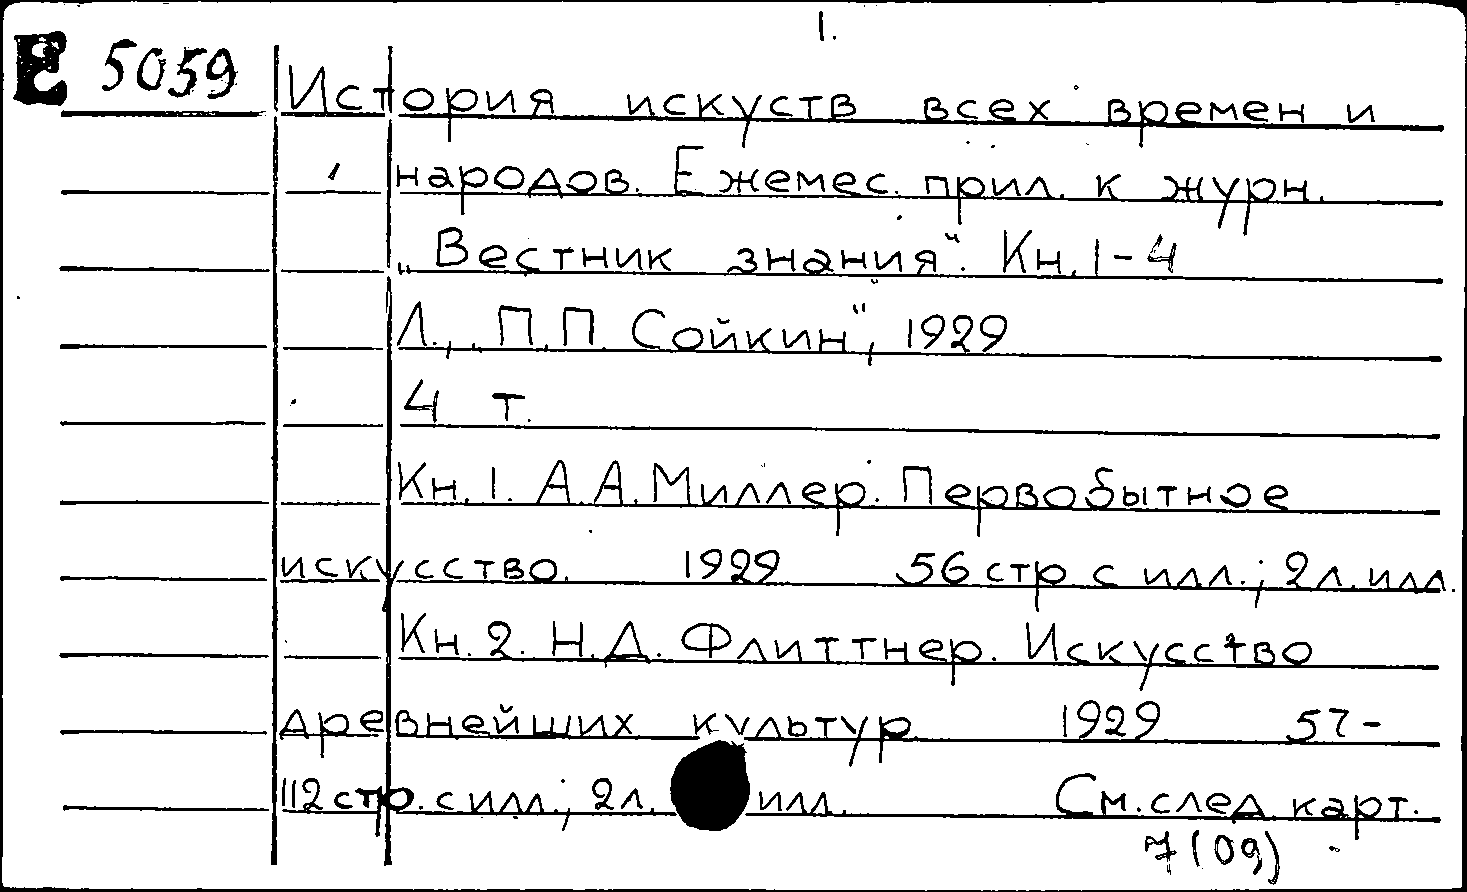 1.
Е 5059
История искуств всех времен и
народов. Ежемес. прил. к журн.
„Вестник знания". Кн. 1-4
Л., „П.П. Сойкин", 1929
4 т.
Кн. 1. А.А. Миллер. Первобытное
искусство. 1929 56 стр с илл.; 2 л. илл.
Кн. 2. Н.Д. Флиттнер. Искусство
древнейших культур 1929 57-
112 стр. с илл.; 2 л. илл. См. след. карт.
7(09)